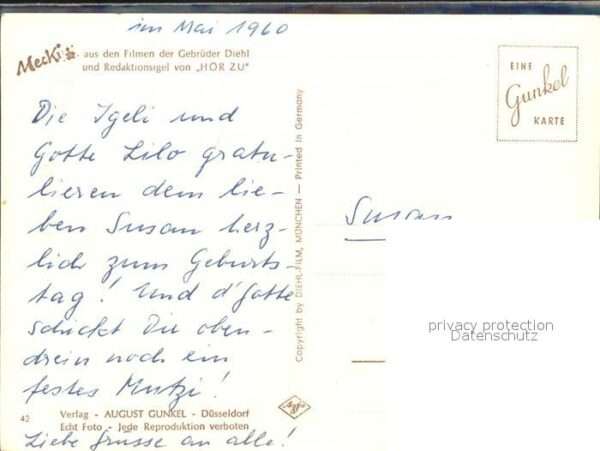 im Mai 1960
Mecki aus den Filmen der Gebrüder Diehl
und Redaktionsigel von „HÖR ZU"
EINE
Gunkel
KARTE
Die Igeli und
Gotte Lilo gratu-
lieren dem lie-
ben Susan herz-
lich zum Geburts-
tag! Und d'Gotte
schickt Dir oben-
drein noch ein
festes Mutzi!
Liebe Grüsse an alle!
Copyright by DIEHL-FILM, MÜNCHEN — Printed in Germany
Susan
privacy protection
Datenschutz
42
Verlag - AUGUST GUNKEL - Düsseldorf
Echt Foto - Jede Reproduktion verboten
Agfa